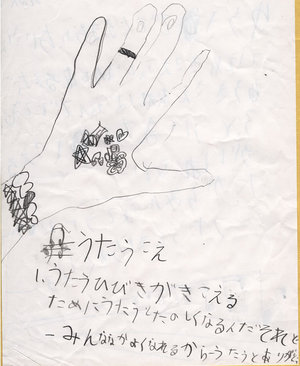 うたうこえ
1.うたうひびきがきこえる
ためにうたうしたのしくなるんだそれと
みんながよくなれるからうたうとおり